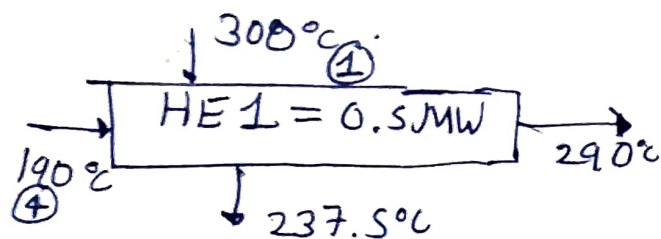 300°C
①
HE1 = 0.5MW
190°C
④
290°C
237.5°C